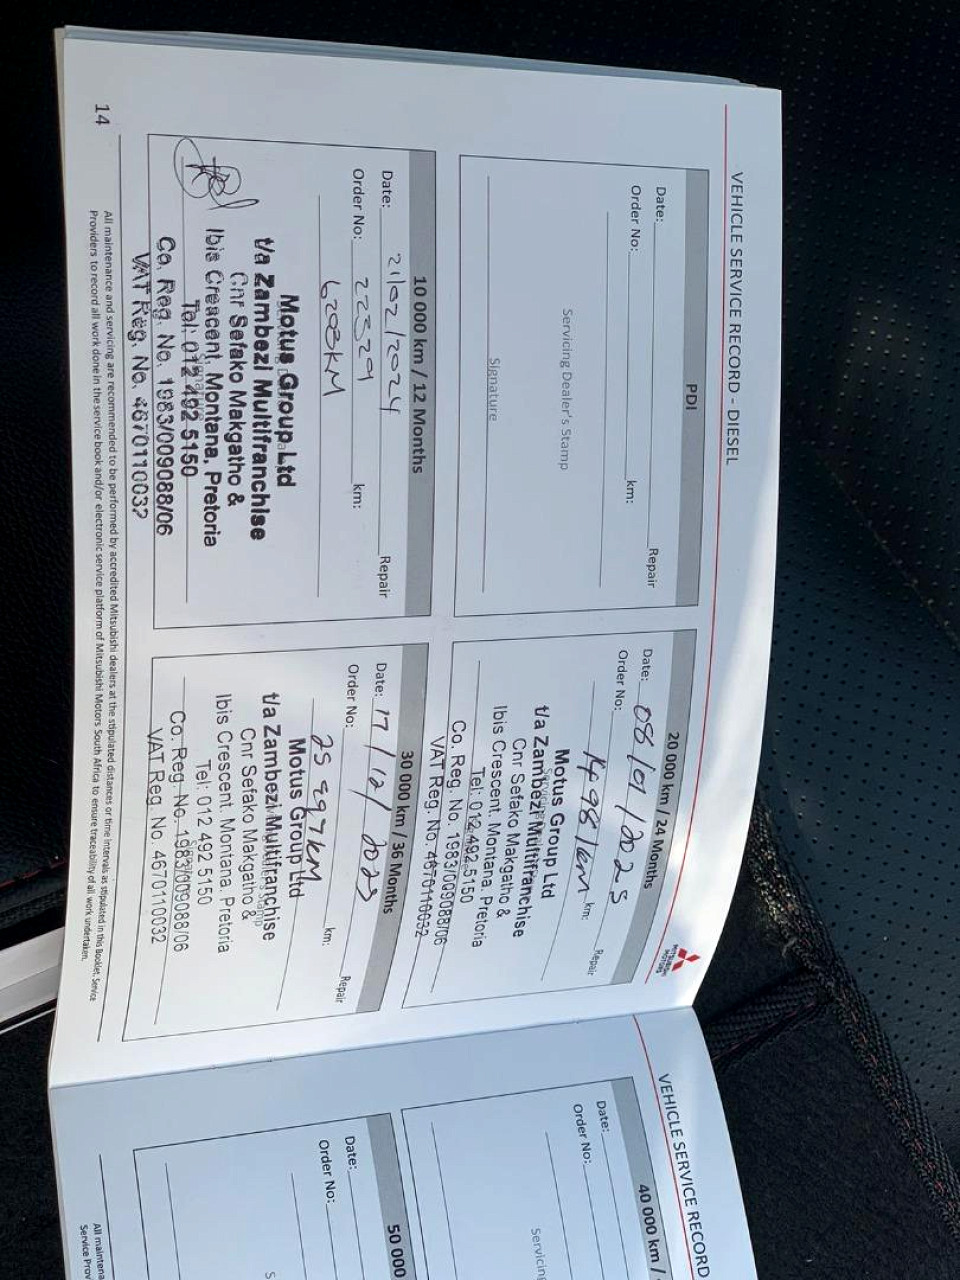 VEHICLE SERVICE RECORD - DIESEL
MITSUBISHI
MOTORS
PDI
Date:
Repair
Order No:
km:
Servicing Dealer's Stamp
Signature
20 000 km / 24 Months
Date: 08/01/2025
Repair
Order No:
km:
14981km
Motus Group Ltd
t/a Zambezi Multifranchise
Cnr Sefako Makgatho &
Ibis Crescent, Montana, Pretoria
Tel: 012 492 5150
Co. Reg. No. 1983/009088/06
VAT Reg. No. 4670110032
10 000 km / 12 Months
Date: 21/02/2024
Repair
Order No: 22329
km:
6203KM
Motus Group Ltd
t/a Zambezi Multifranchise
Cnr Sefako Makgatho &
Ibis Crescent, Montana, Pretoria
Tel: 012 492 5150
Co. Reg. No. 1983/009088/06
VAT Reg. No. 4670110032
30 000 km / 36 Months
Date: 17/12/2025
Repair
Order No:
km:
25 997km
Motus Group Ltd
t/a Zambezi Multifranchise
Cnr Sefako Makgatho &
Ibis Crescent, Montana, Pretoria
Tel: 012 492 5150
Co. Reg. No. 1983/009088/06
VAT Reg. No. 4670110032
All maintenance and servicing are recommended to be performed by accredited Mitsubishi dealers at the stipulated distances or time intervals as stipulated in this Booklet. Service
Providers to record all work done in the service book and/or electronic service platform of Mitsubishi Motors South Africa to ensure traceability of all work undertaken.
14
VEHICLE SERVICE RECORD
40 000 km /
Date:
Order No:
Servicing
50 000
Date:
Order No:
S
All maintena
Service Prov